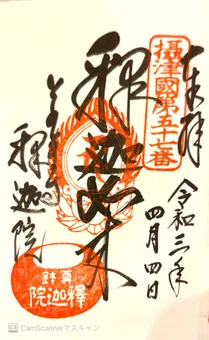 奉拝
攝津國第五十七番
令和三年
四月四日
釋迦如来
釋迦院
CamScannerでスキャン